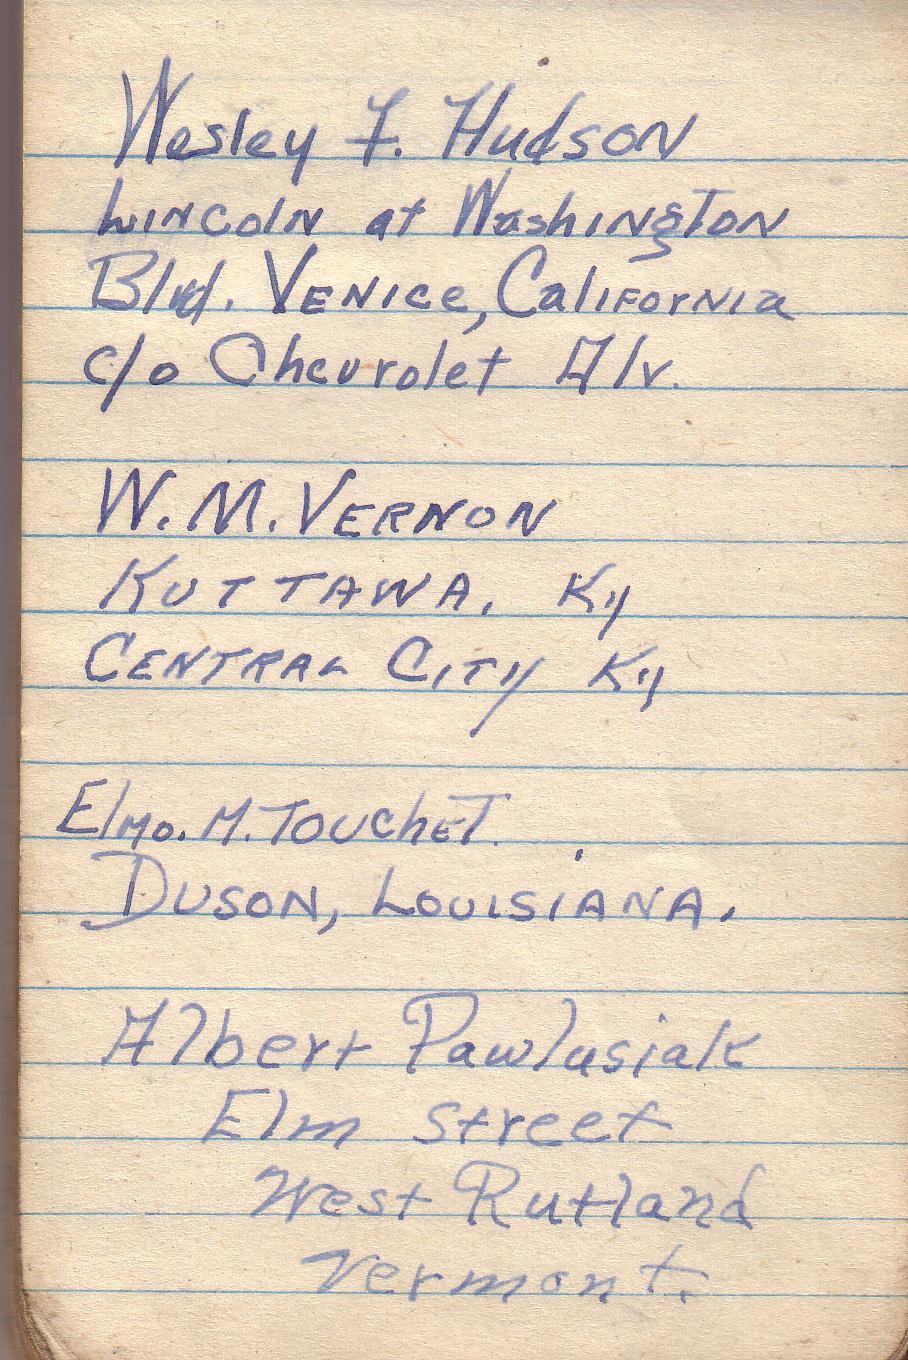 Wesley F. Hudson
Lincoln at Washington
Blvd. Venice, California
c/o Chevrolet
W. M. Vernon
Kuttawa, Ky
Central City Ky
Elmo. M. Touchet.
Duson, Louisiana.
Albert Pawlusiak
Elm Street
West Rutland
Vermont.